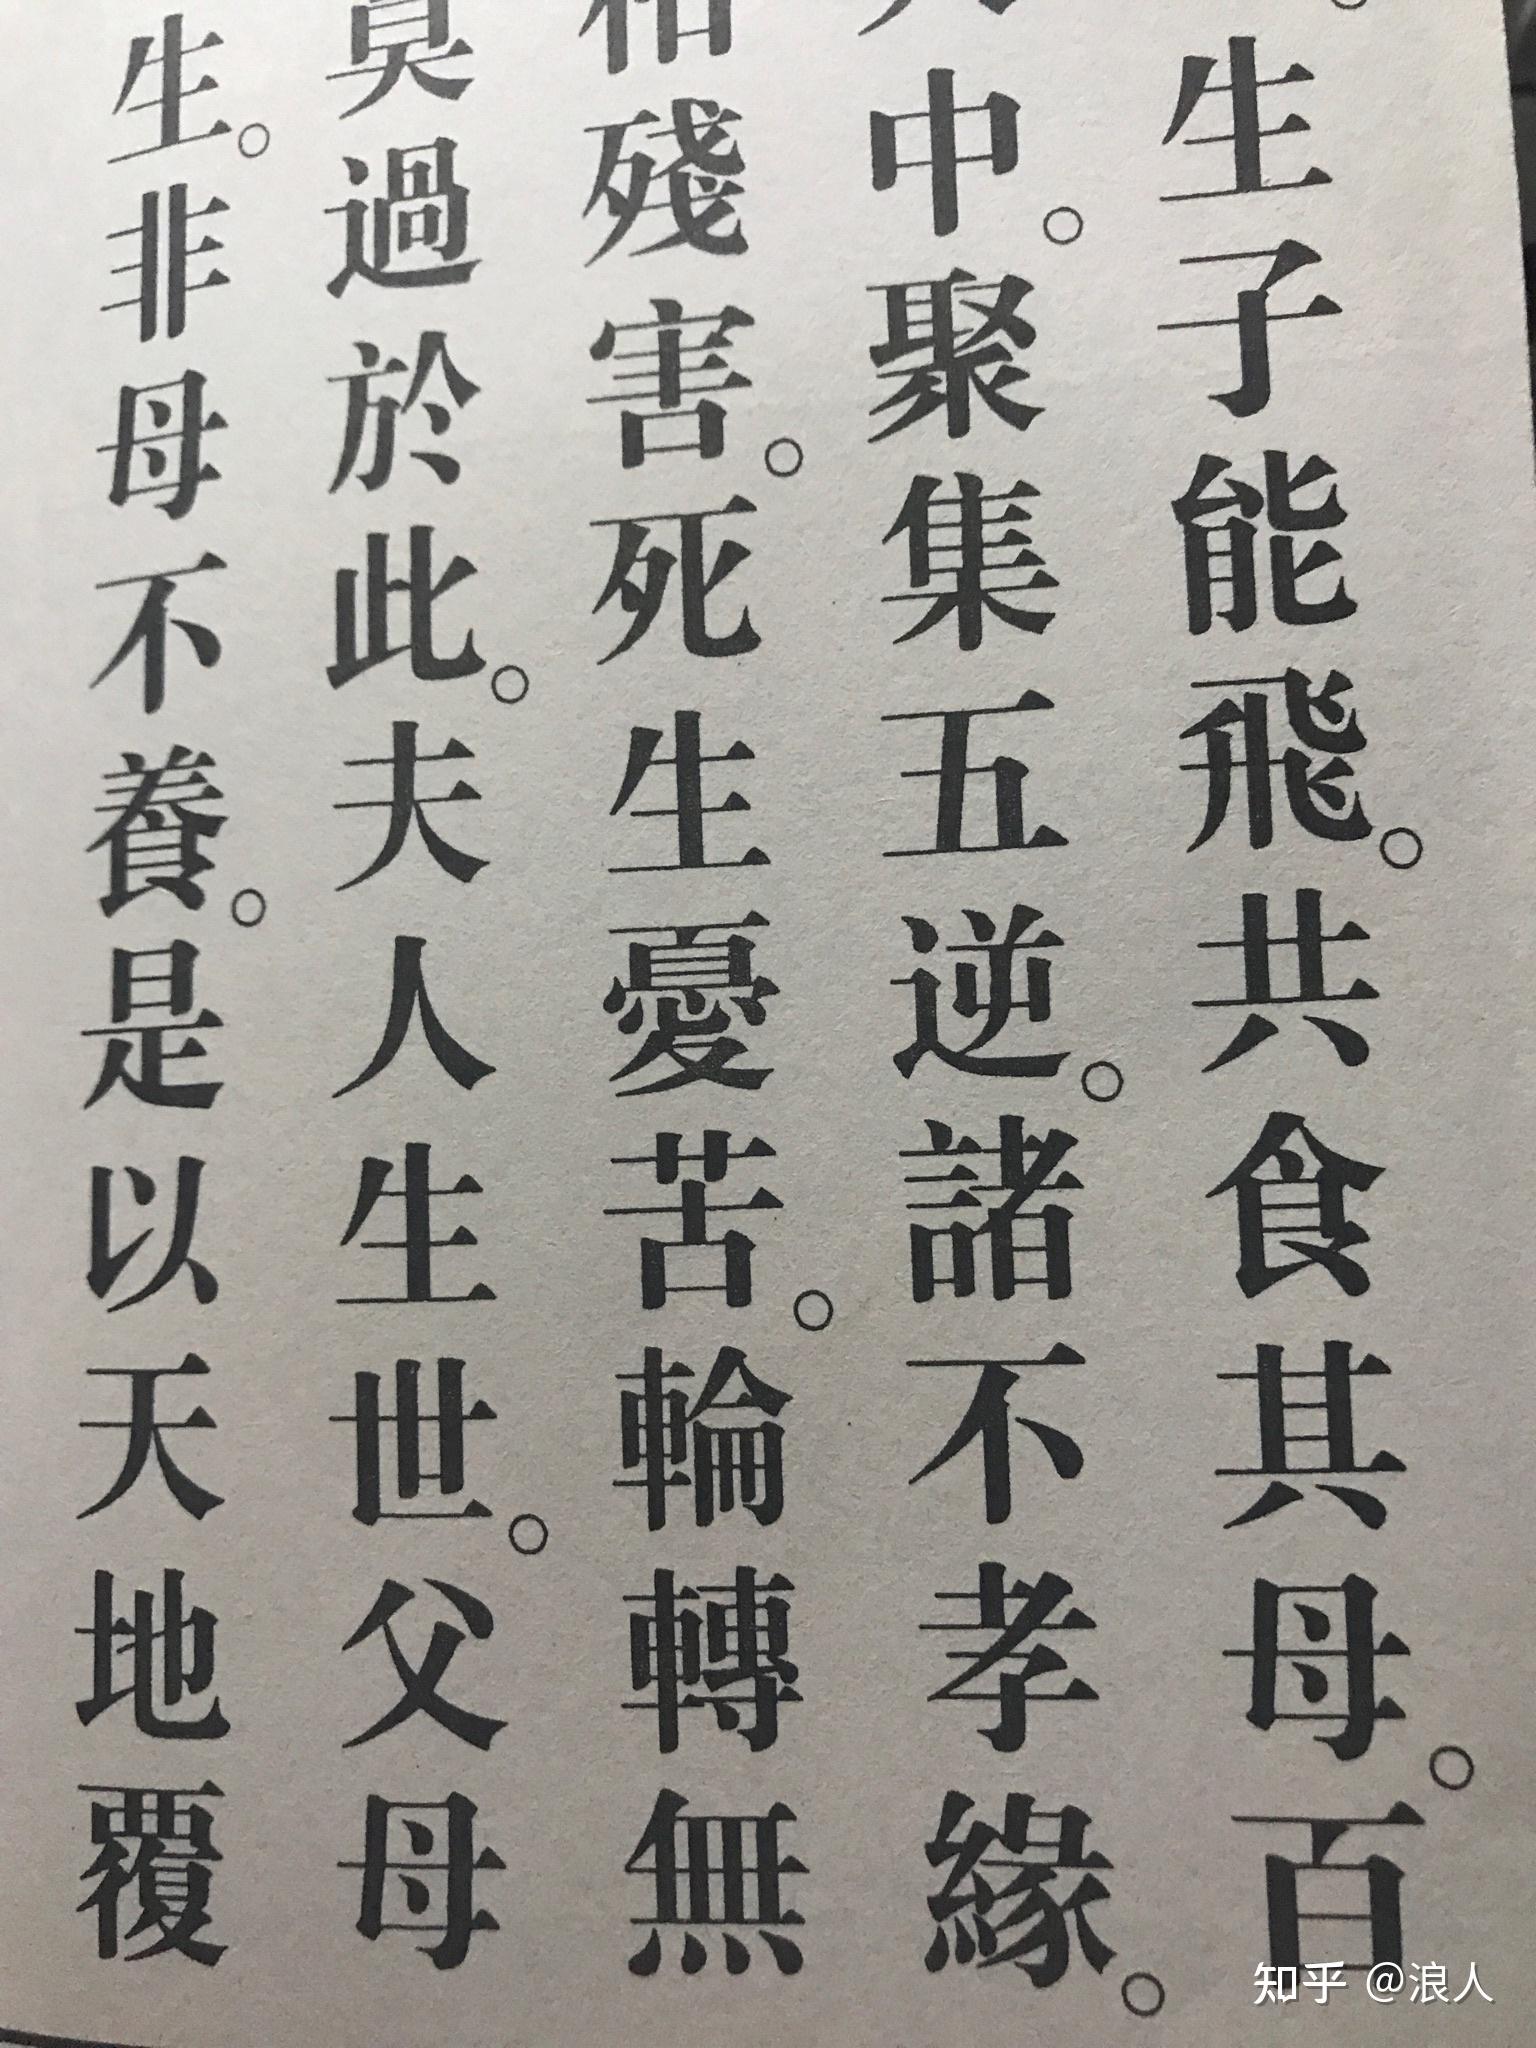 生子能飛。共食其母。百
中。聚集五逆。諸不孝緣。
殘害。死生憂苦。輪轉無
過於此。夫人生世。父母
生。非母不養。是以天地覆
知乎 @浪人